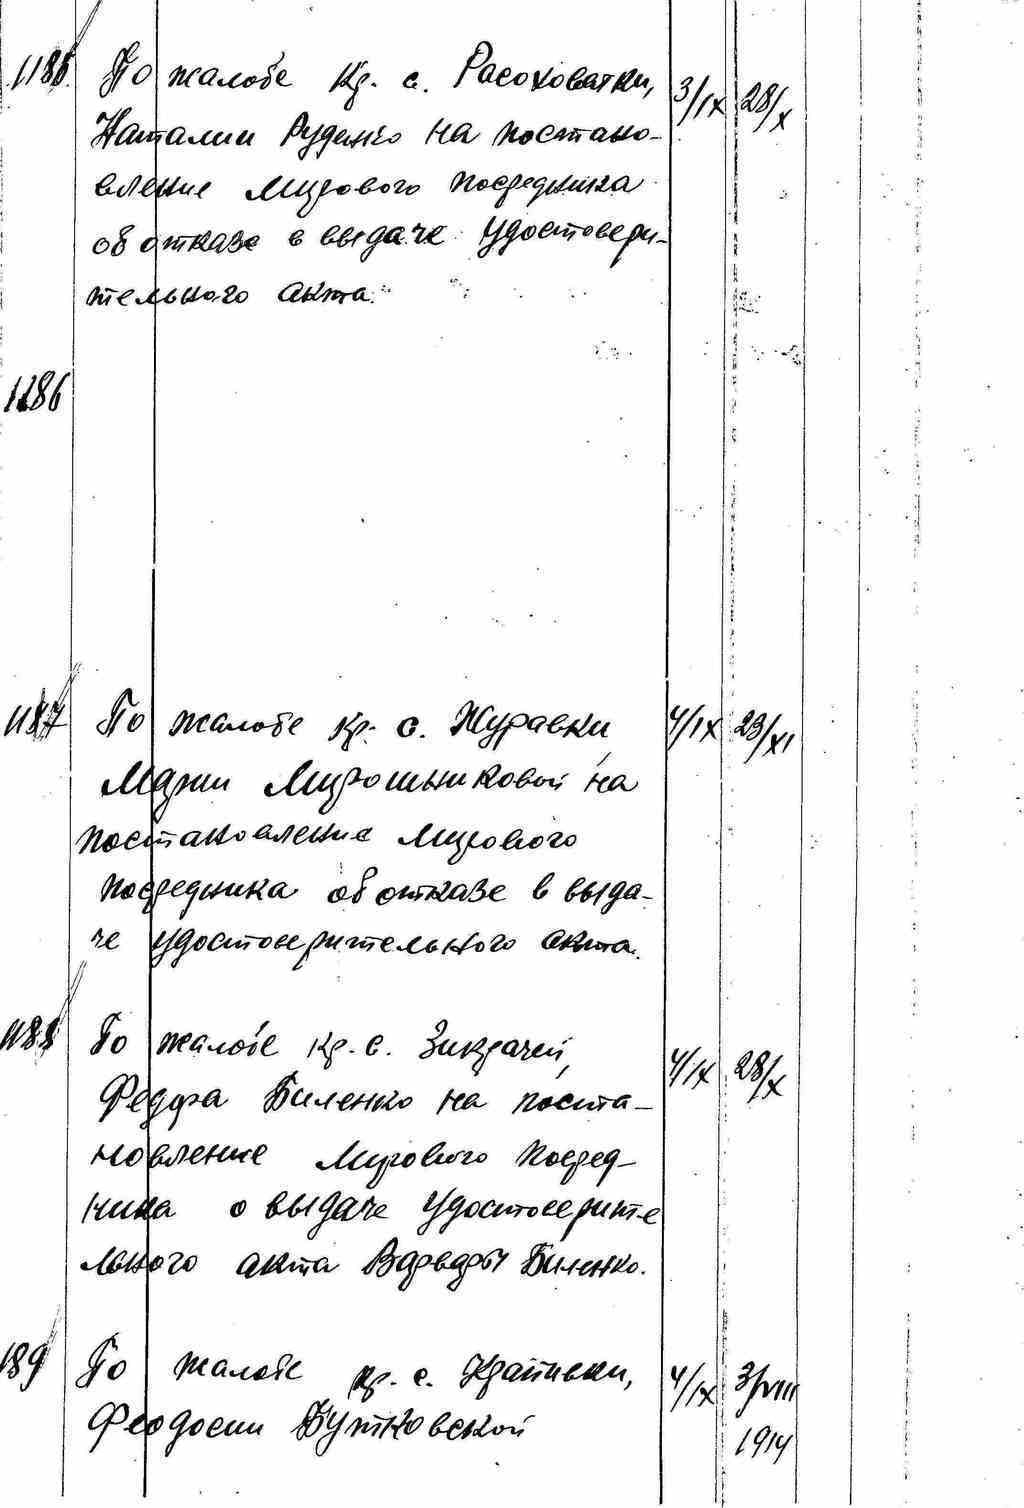 1185. По жалобе Кр. с. Расоховатки, 3/IX 28/X
Наталии Руденко на постано-
вление Мирового посредника
об отказе в выдаче удостовери-
тельного акта.
1186
1187 По жалобе Кр. с. Журавки, 4/IX 23/XI
Марии Мирошниковой на
постановление Мирового
посредника об отказе в выда-
че удостоверительного акта.
1188 По жалобе кр. с. Зикрачей, 4/IX 28/X
Федора Биленко на поста-
новление Мирового посред-
ника о выдаче удостоверите
льного акта Варвары Биленко.
189 По жалобе кр. с. Крапивки, 4/IX 3/VIII
Феодосии Бутковской 1914